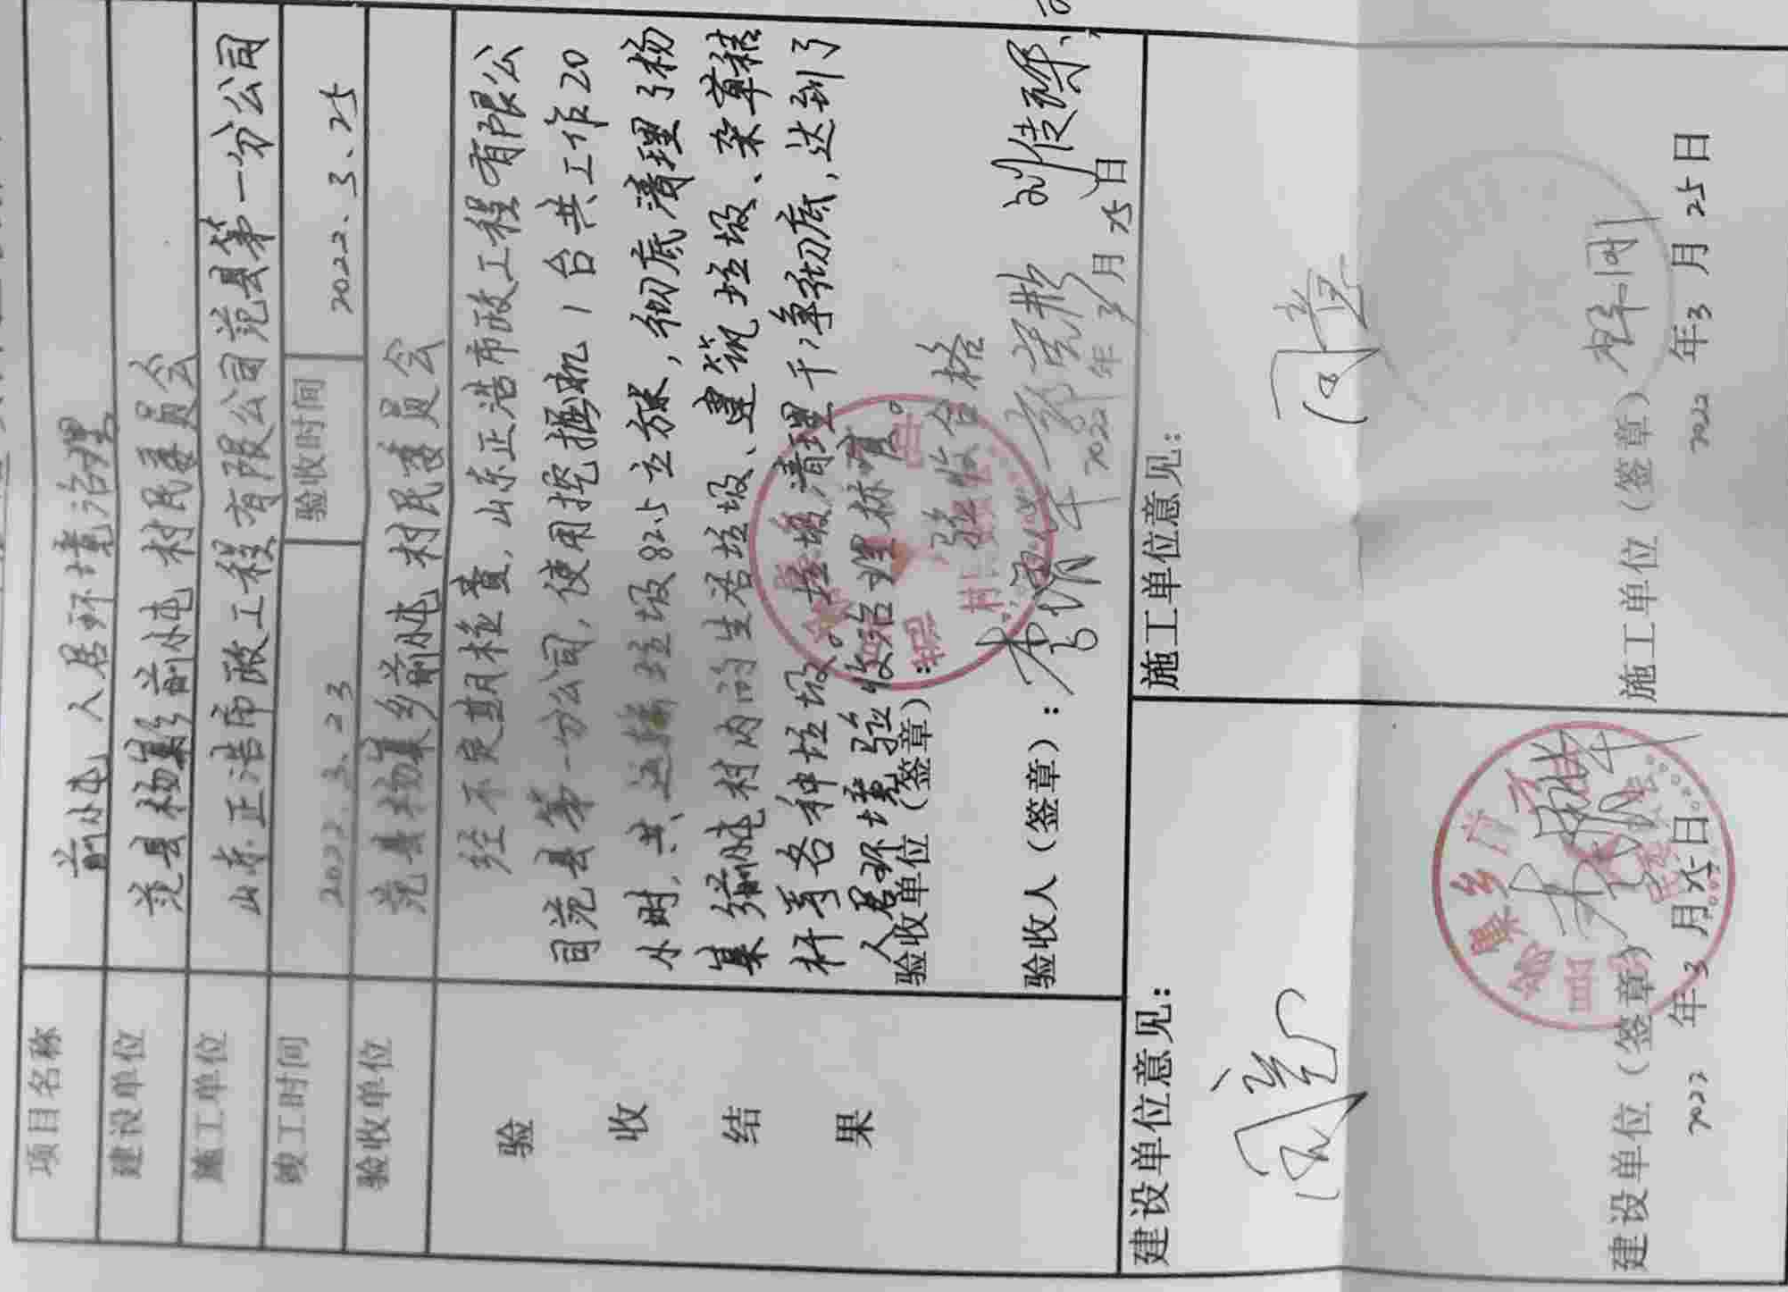 项目名称 前炖人居环境治理
建设单位 范县杨集乡前炖村民委员会
施工单位 山东正浩市政工程有限公司范县第一分公司
竣工时间 2022.3.23 验收时间 2022.3.25
验收单位 范县杨集乡前炖村民委员会
验收结果
经不定期检查,山东正浩市政工程有限公
司范县第一分公司,使用挖掘机1台共工作20
小时,共运输垃圾825立方米,彻底清理了杨
集乡前炖村内的生活垃圾、建筑垃圾、杂草秸
杆等各种垃圾。垃圾清理干净彻底,达到了
人居环境验收治理标准。
验收单位(签章): 验收合格
验收人(签章):
2022年3月25日
建设单位意见:
同意
建设单位(签章)
2022年3月25日
施工单位意见:
同意
施工单位(签章)
2022年3月25日